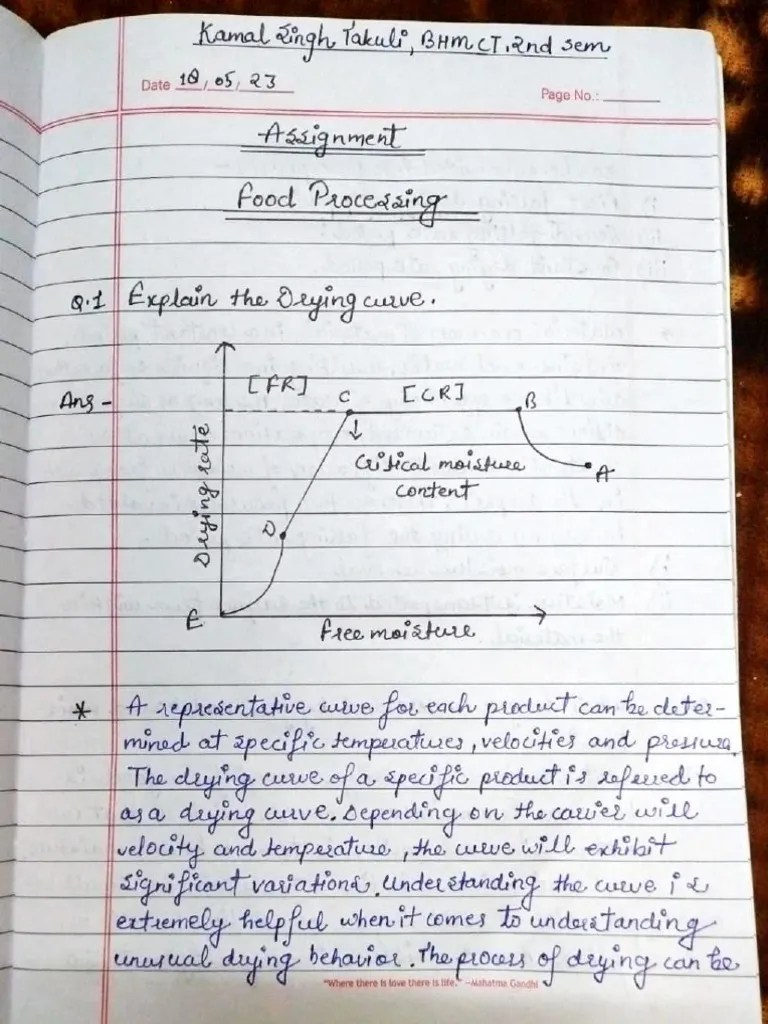 Kamal Singh Takuli, BHMCT, 2nd sem
Date 18/05/23
Page No.:
Assignment
Food Processing
Q.1 Explain the Drying curve.
Ans-
[FR]
C
[CR]
B
Critical moisture
content
A
Drying rate
D
E
free moisture
* A representative curve for each product can be deter-
mined at specific temperatures, velocities and pressure.
The drying curve of a specific product is referred to
as a drying curve. Depending on the carrier will
velocity and temperature, the curve will exhibit
significant variations. Understanding the curve is
extremely helpful when it comes to understanding
unusual drying behavior. The process of drying can be
"Where there is love there is life." –Mahatma Gandhi